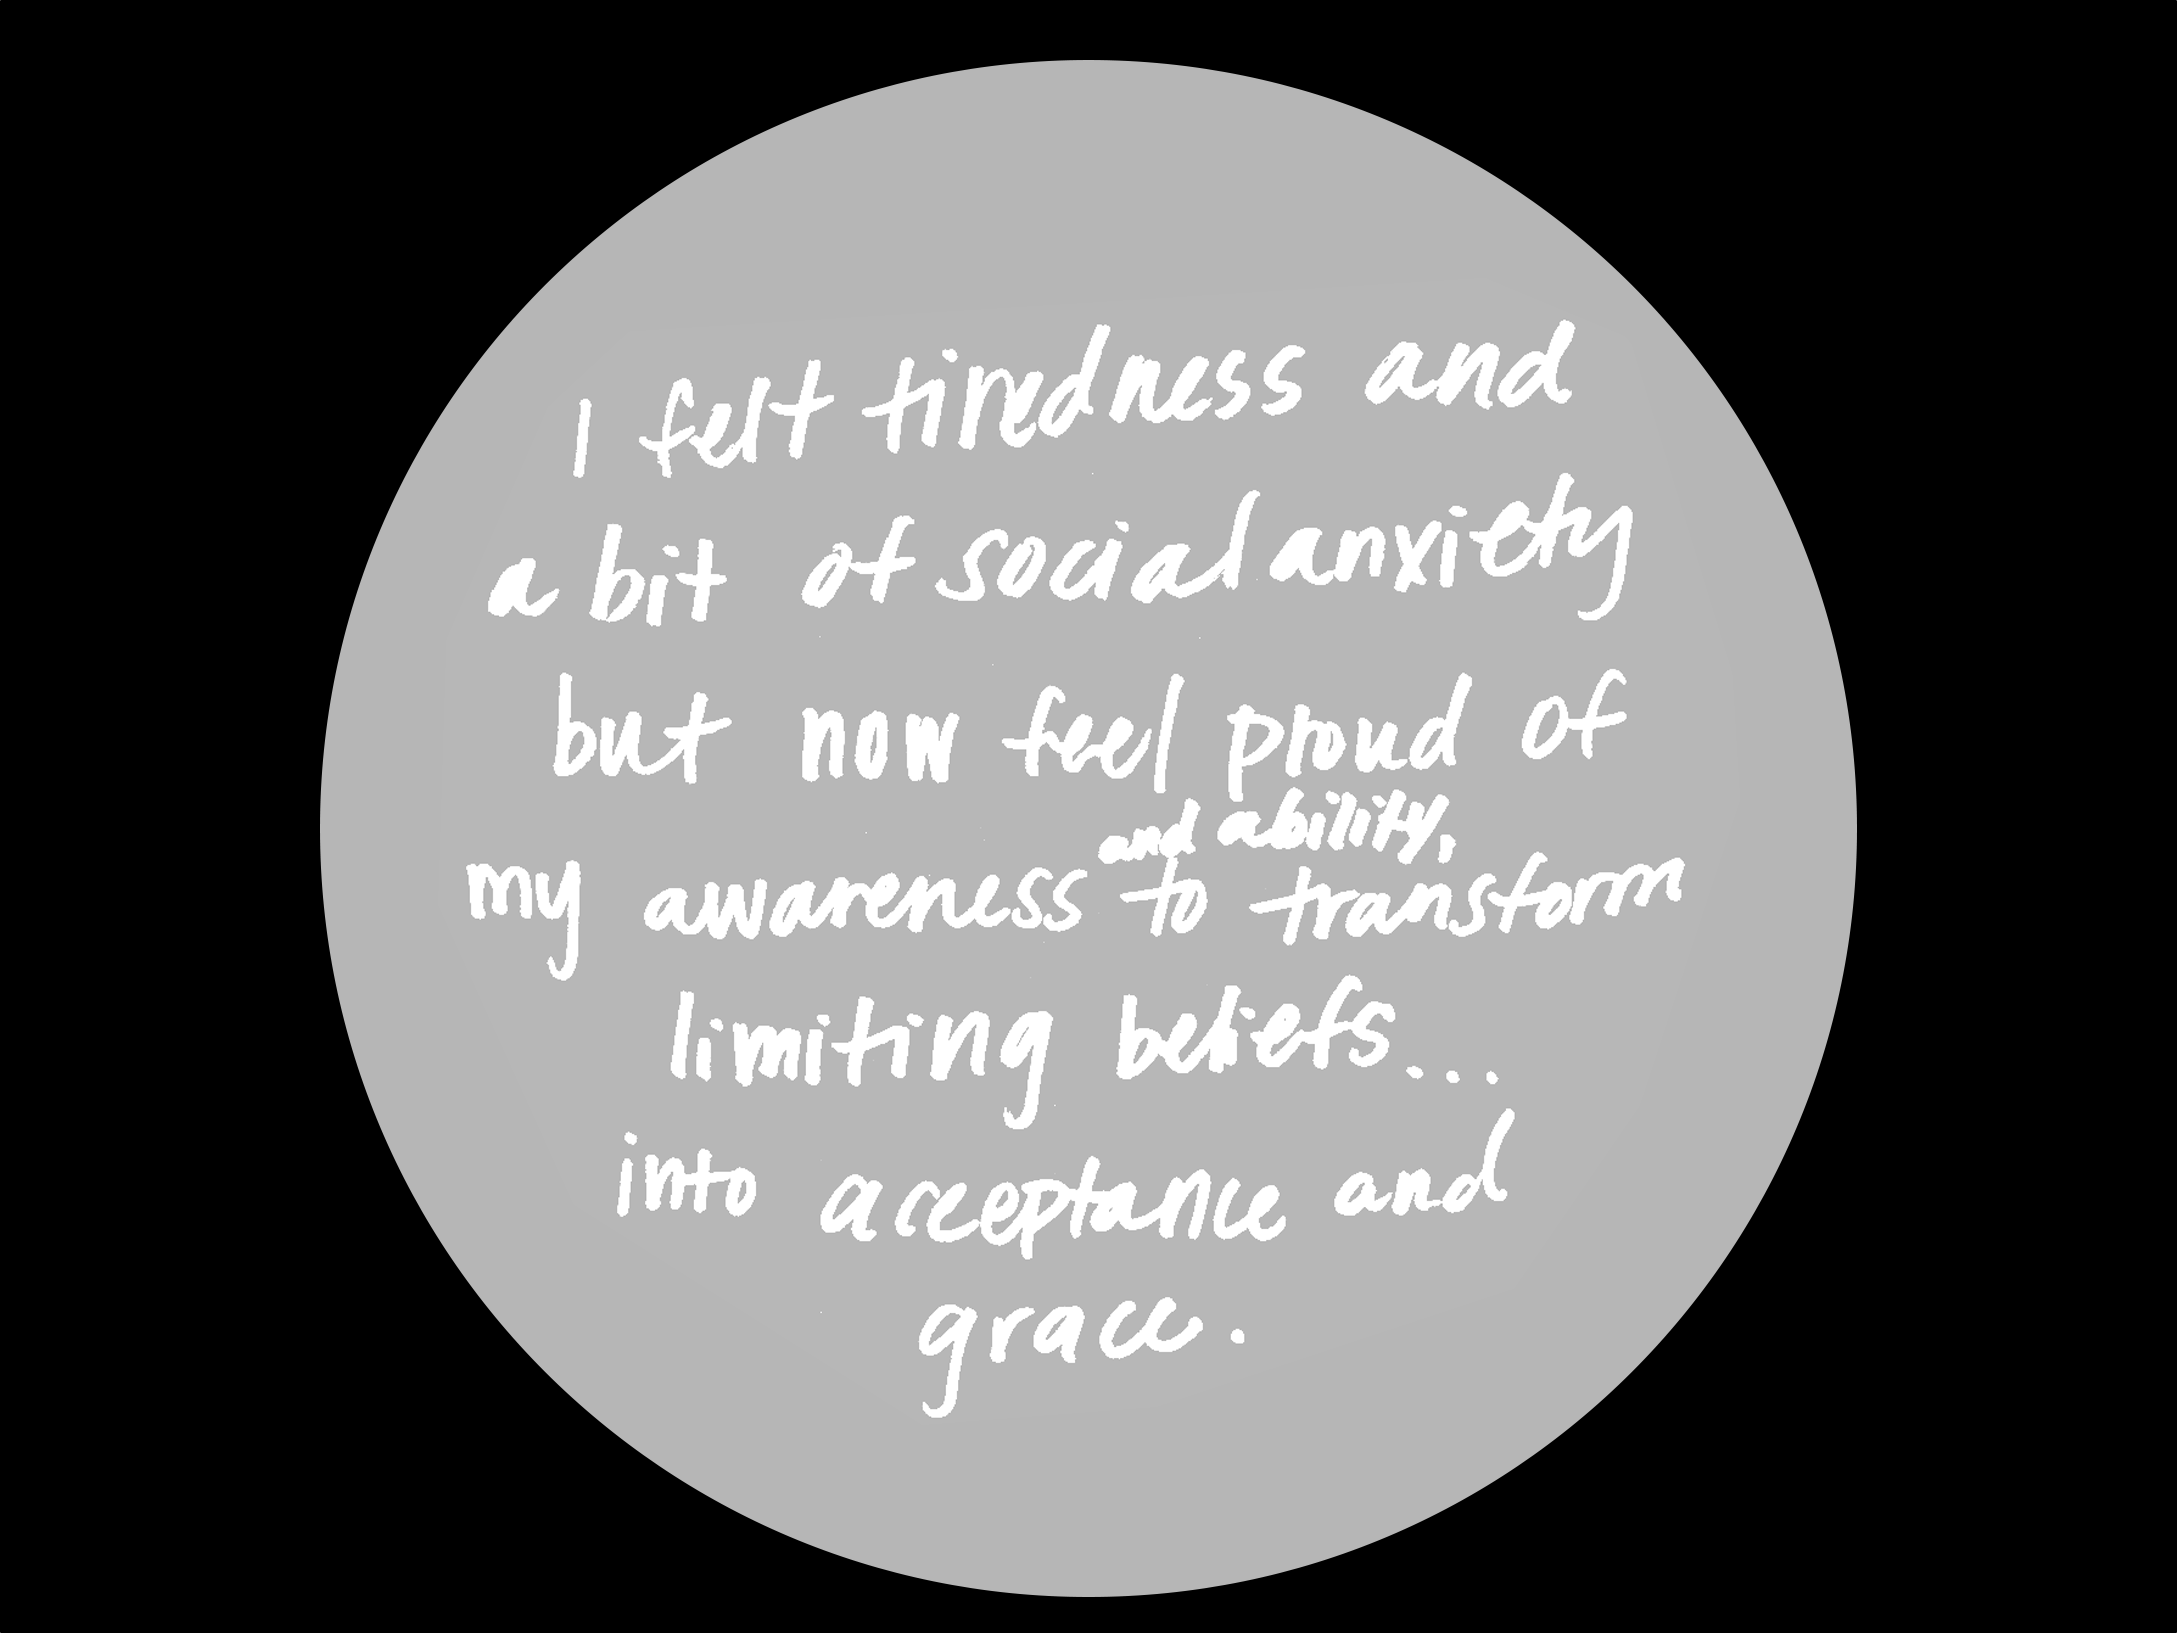 I felt tiredness and
a bit of social anxiety
but now feel proud of
and ability,
my awareness to transform
limiting beliefs...
into acceptance and
grace.